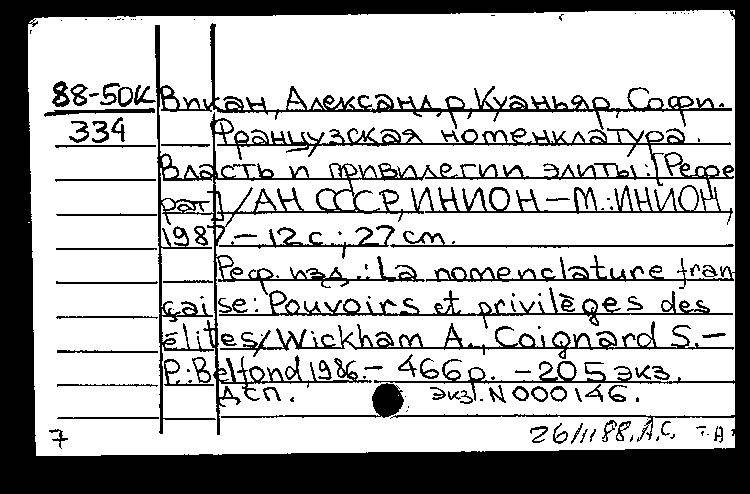 88-50К Викан, Александр, Куаньяр, Софи.
334 Французская номенклатура.
Власть и привилегии элиты: [Рефе
рат] / АН СССР, ИНИОН. – М.: ИНИОН,
1987. – 12 с.; 27 см.
Реф. изд.: La nomenclature fran
çaise: Pouvoirs et privilèges des
élites / Wickham A., Coignard S. –
P.: Belfond, 1986. – 466 p. – 205 экз.
ДСП. экз. N 000146.
7 26/II 88. А.С. Т.А